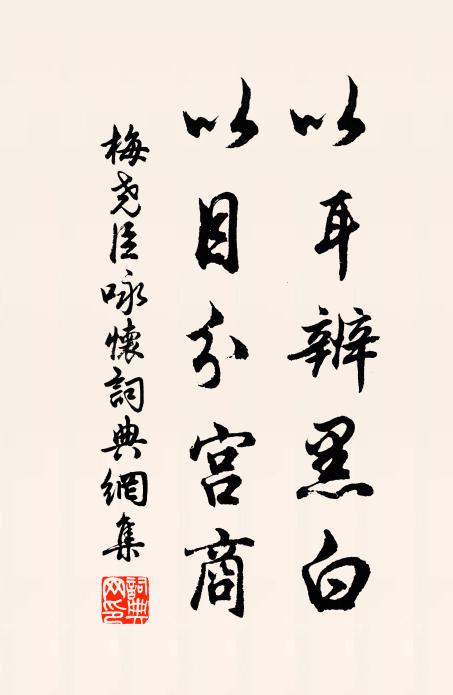 以耳辨黑白
以目分宫商
梅尧臣咏懷詞典網集
詞典网印